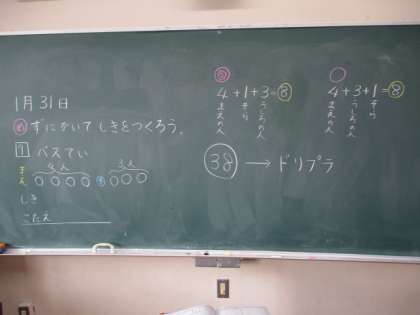 1月31日
め ずにかいて しきをつくろう。
1 バスてい
4人 3人
まえ
しき
こたえ
4+1+3=8
まえの人
そら
うしろの人
4+3+1=8
まえの人
うしろの人
そら
38 → ドリプラ